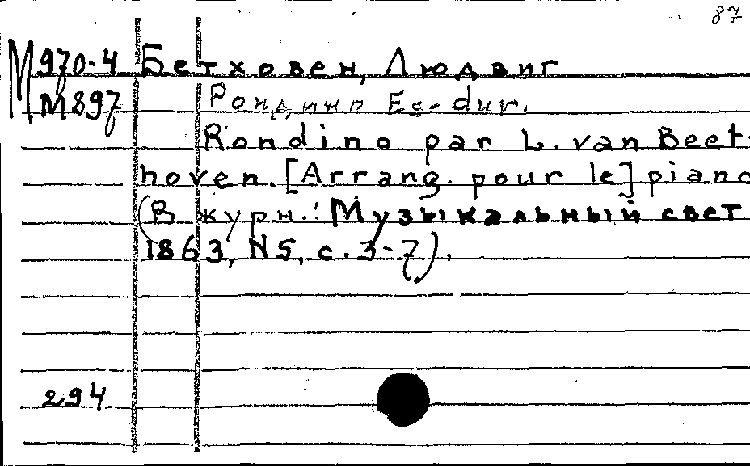 87
М 970-4 Бетховен, Людвиг
М897 Рондино Es-dur.
Rondino par L. van Beet-
hoven. [Arrang. pour le] piano
(В журн.: Музыкальный свет
1863, N5, с. 3-7).
294